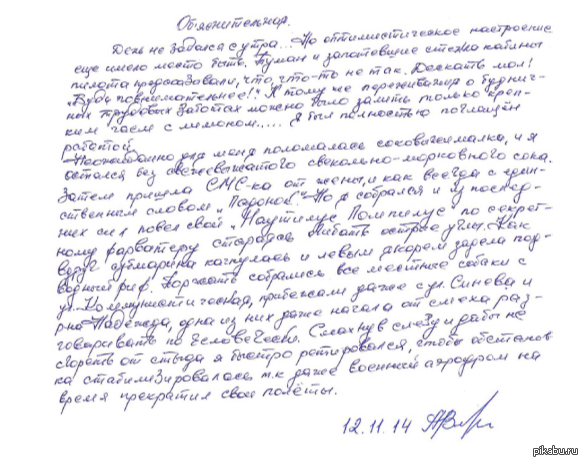 Объяснительная.
День не задался с утра... Но оптимистическое настроение
еще имело место быть. Туман и запотевшие стекла кабины
пилота предсказывали, что, что-то не так. Дескать мол!
„Будь повнимательнее!" К тому же переживания о буднич-
ных трудовых заботах можно было залить только креп-
ким чаем с лимоном..... Я был полностью поглощён
работой.
Неожиданно для меня поломалась соковыжималка, и я
остался без свежевыжатого свекольно-морковного сока.
Затем пришла СМС-ка от жены, и как всегда с един-
ственным словом „Падонок". Но я собрался и из послед-
них сил повел свой „Наутилус Помпилус" по секрет-
ному фарватеру стараясь огибать острые углы. Как
вдруг субмарина качнулась и левым якорем задела под-
водный риф. Поржать собрались все местные собаки с
ул. Коммунистической, прибежали даже с ул. Синева и
р-на Надежда, одна из них даже начала от смеха раз-
говаривать по человечески. Смахнув слезу и дабы не
сгореть от стыда я быстро ретировался, чтобы обстанов
ка стабилизировалась т.к даже военный аэродром на
время прекратил свои полёты.
12.11.14
pikabu.ru